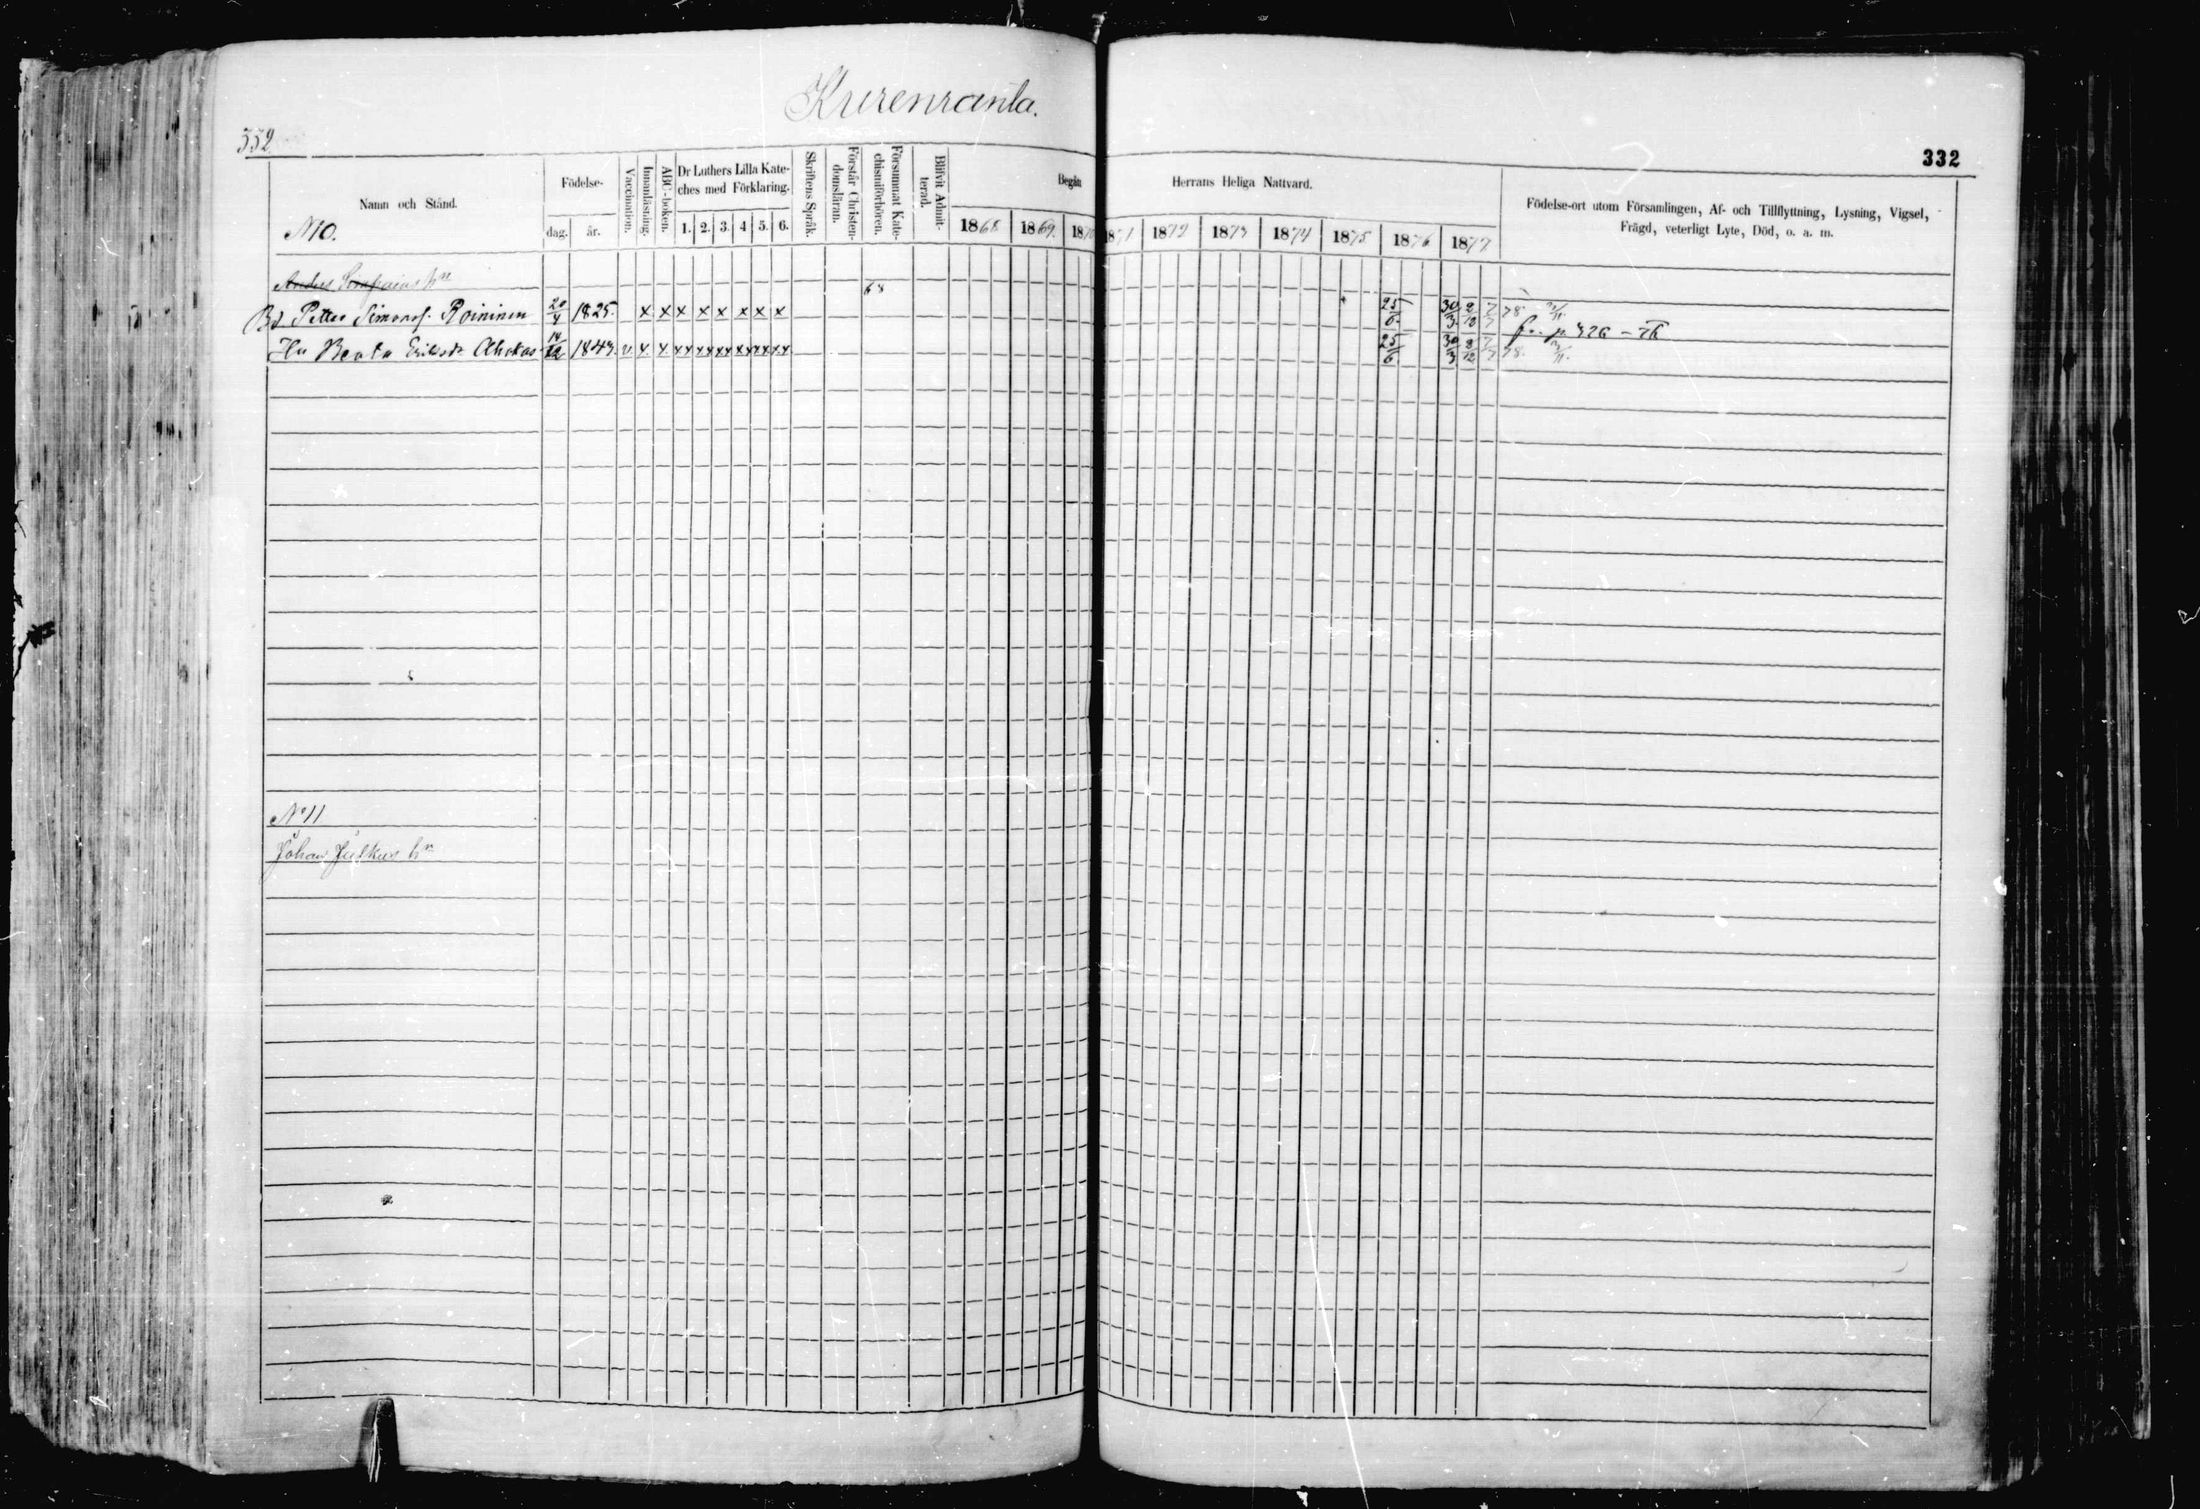 Kurenranta.
332
332
Namn och Stånd.
N10.
Födelse-
dag.
år.
Vaccination.
Innanläsning.
ABC-boken.
Dr Luthers Lilla Kate-
ches med Förklaring.
1. 2. 3. 4 5. 6.
Skriftens Språk.
Förstår Christen-
domsläran.
Försummat Kate-
chismiförhören.
Blifvit Admit-
terad.
Begån
Herrans Heliga Nattvard.
1868 1869. 1870 1871 1872 1873 1874 1875 1876 1877
Födelse-ort utom Församlingen, Af- och Tillflyttning, Lysning, Vigsel,
Frägd, veterligt Lyte, Död, o. a. m.
Anders hn 68
Bd. Petter Simonsf. Roininen 20/4 1825. x x x x x x x x 25/6 30/3 2/12 7/7 78.
fr. p. 326 – 76
Hu Beata Eriksdr Ahokas 1843. v. x x xx xx xx xx xx xx 25/6 30/3 8/12 7/7 78.
No 11
Johan Julkus hn